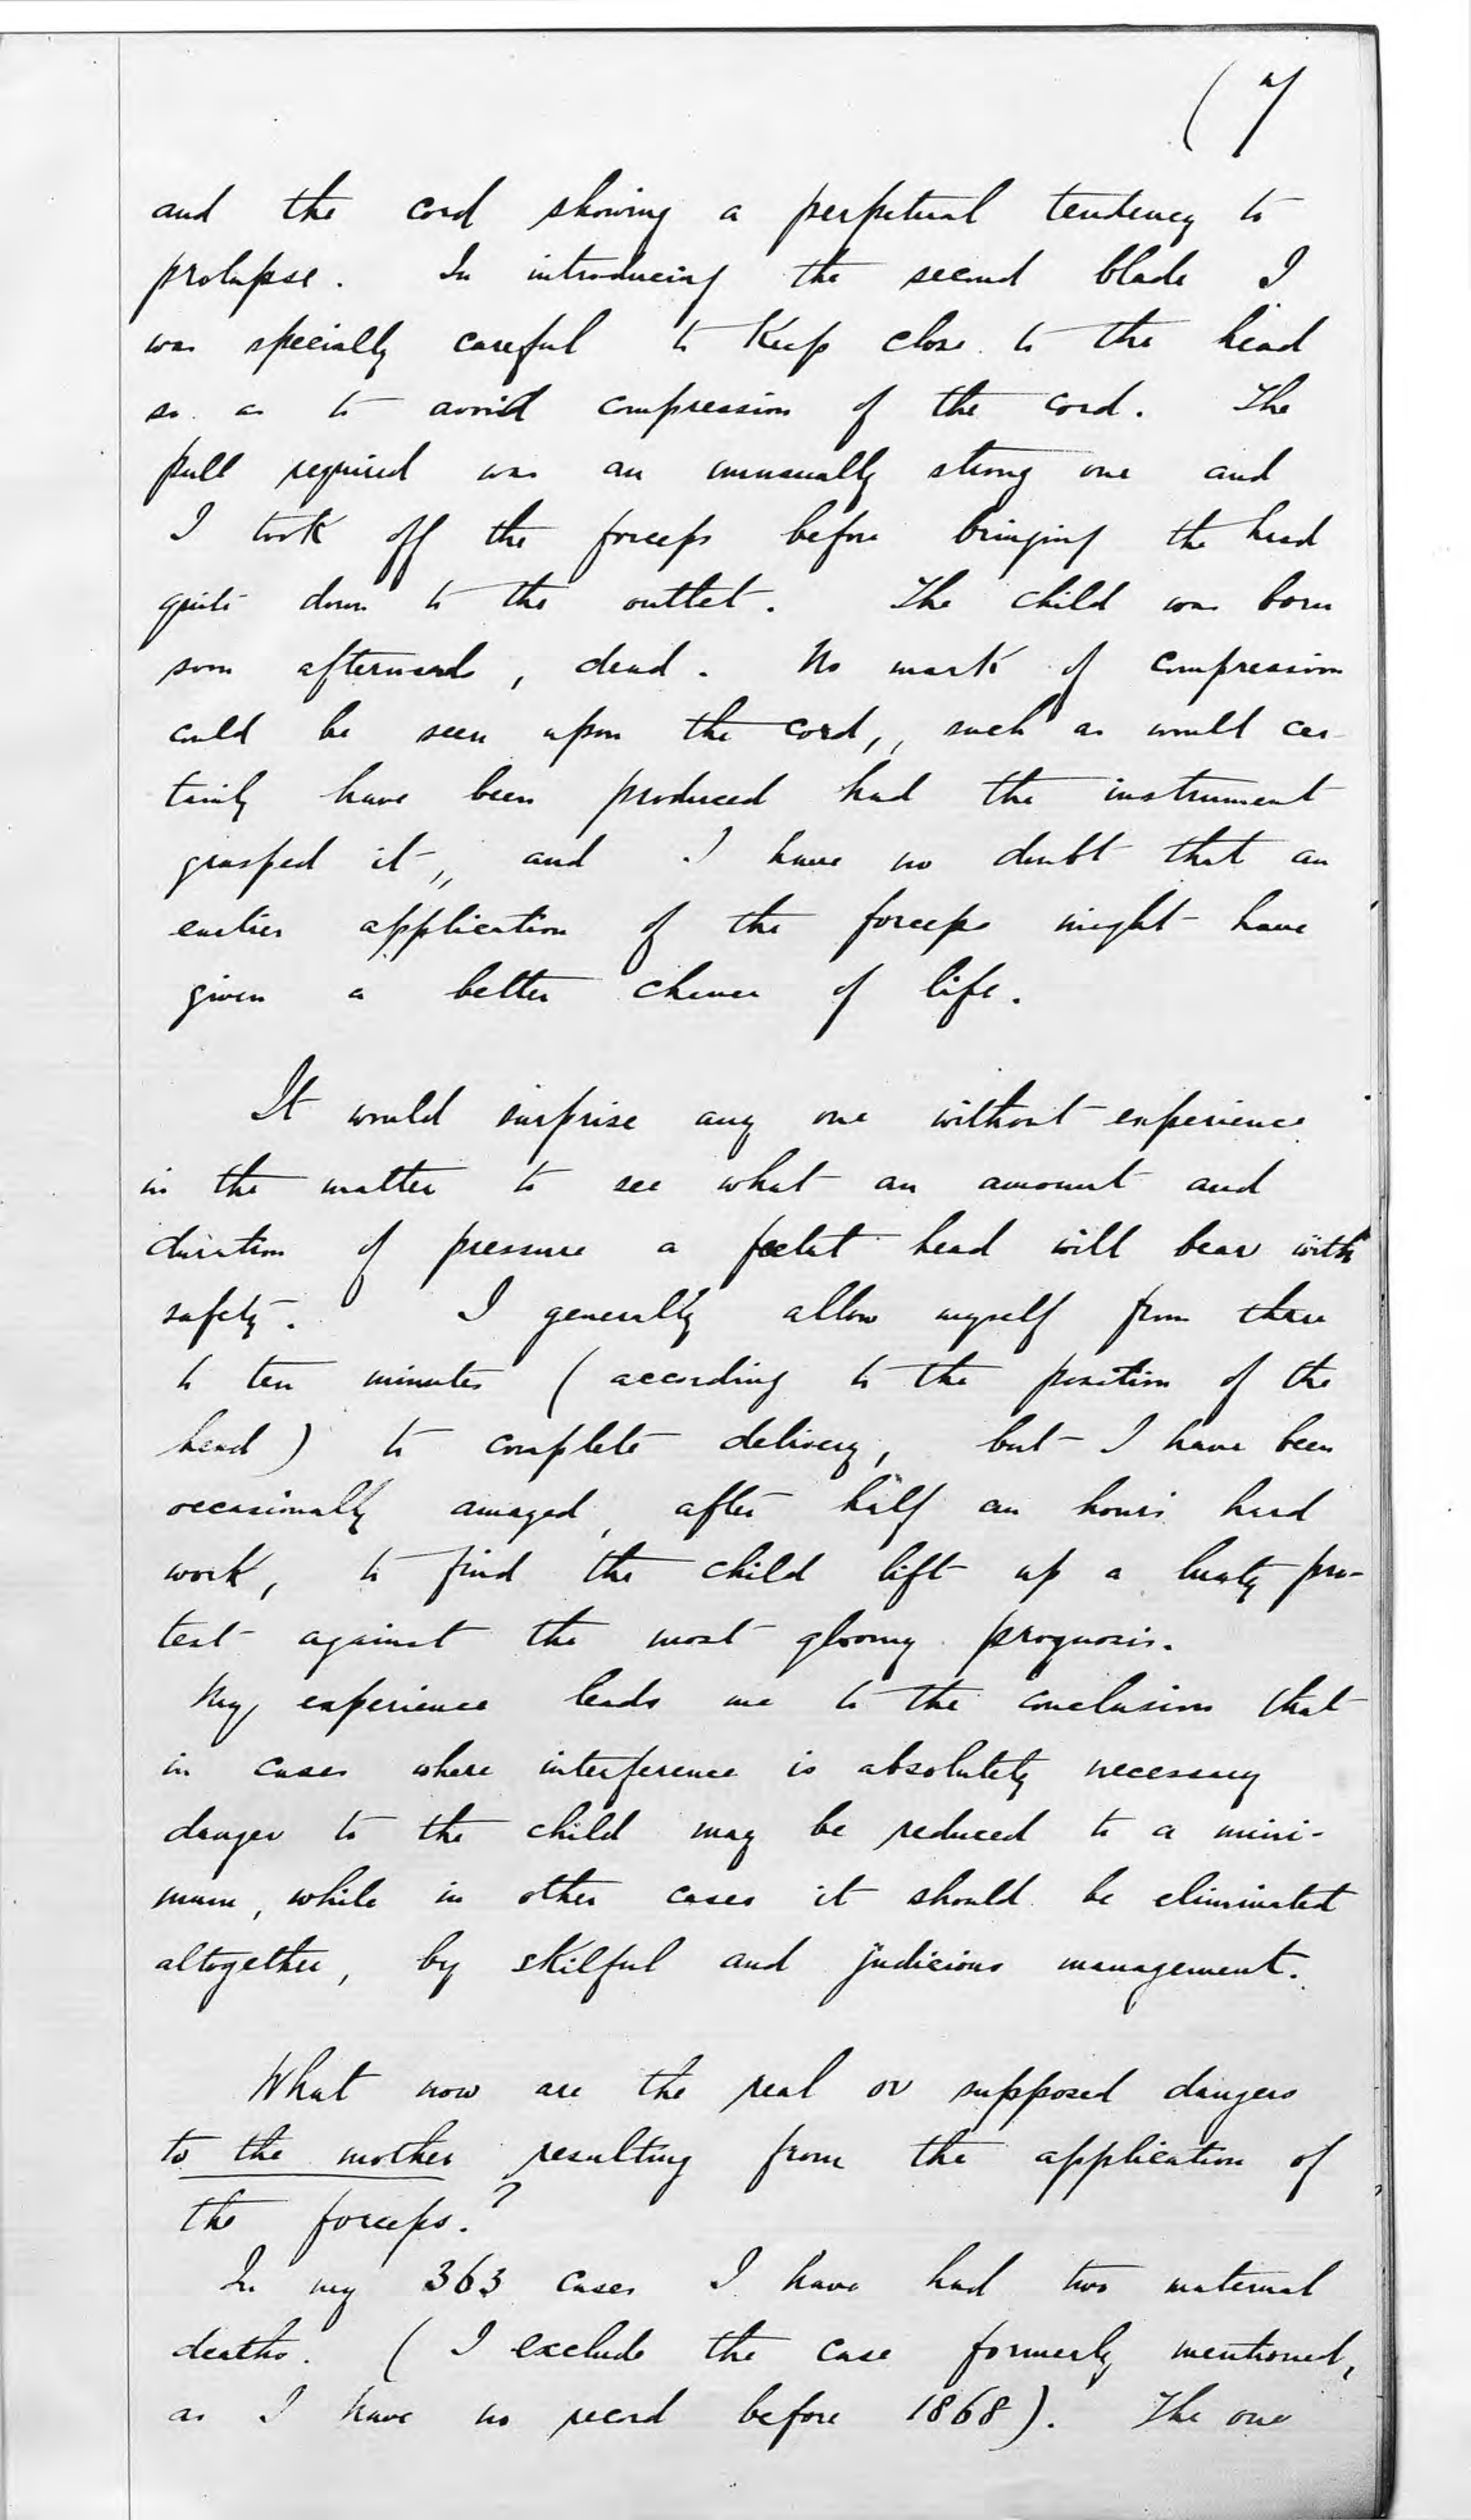 (7
and the cord showing a perpetual tendency to
prolapse. In introducing the second blade I
was specially careful to keep close to the head
so as to avoid compression of the cord. The
pull required was an unusually strong one and
I took off the forceps before bringing the head
quite down to the outlet. The child was born
soon afterwards, dead. No mark of compression
could be seen upon the cord,, such as would cer-
tainly have been produced had the instrument
grasped it,, and I have no doubt that an
earlier application of the forceps might have
given a better chance of life.
It would surprise any one without experience
in the matter to see what an amount and
duration of pressure a foetal head will bear with
safety. I generally allow myself from three
to ten minutes (according to the position of the
head) to complete delivery, but I have been
occasionally amazed, after half an hours hard
work, to find the child lift up a lusty pro-
test against the most gloomy prognosis.
My experience leads me to the conclusion that
in cases where interference is absolutely necessary
danger to the child may be reduced to a mini-
mum, while in other cases it should be eliminated
altogether, by skilful and judicious management.
What now are the real or supposed dangers
to the mother resulting from the application of
the forceps.?
In my 363 cases I have had two maternal
deaths. (I exclude the case formerly mentioned,
as I have no record before 1868). The one